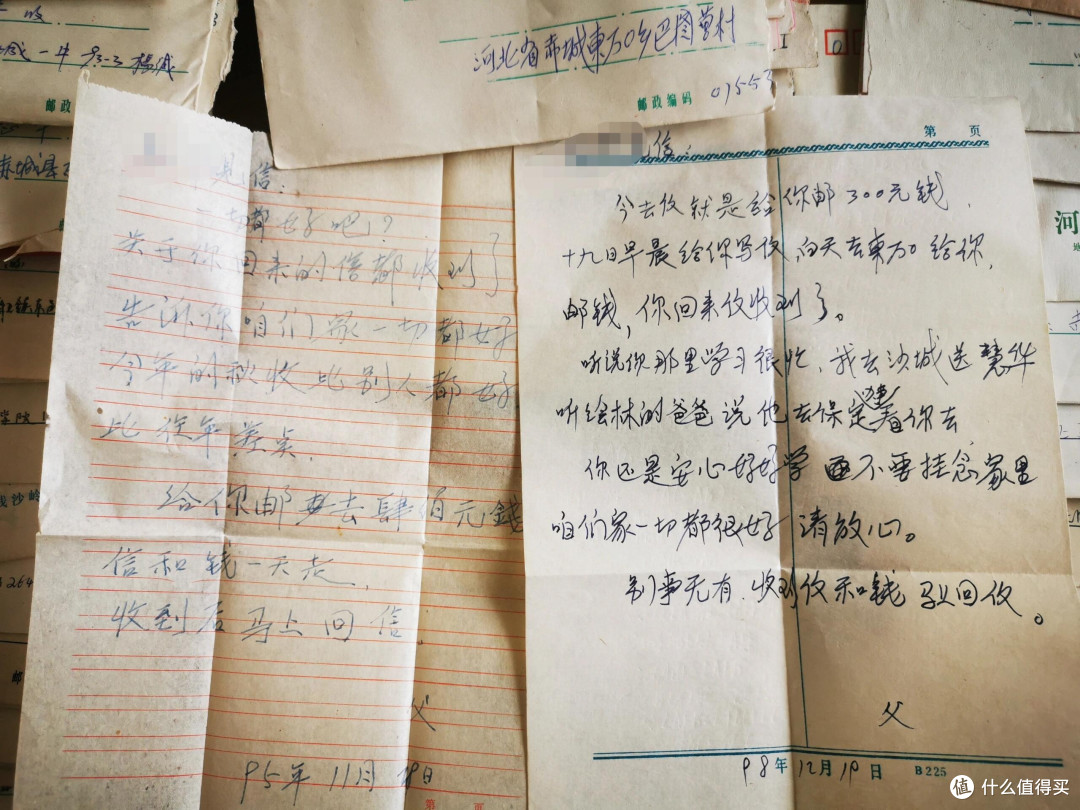 河北省赤城東万口乡巴图营村
邮政编码 07553
赤城县
邮政
河
学院
264
见信:
一切都好吧?
关于你回来的信都收到了
告诉你咱们家一切都好
今年的秋收比别人都好
比往年差点.
给你邮去肆佰元錢
信和钱一天走.
收到后马上回信.
父
95年11月19日
第 页
第 页
信:
今去伩就是给你邮300元钱,
十九日早晨给你写伩,白天去東万口给你,
邮钱,你回来伩收到了。
听说你那里学习很忙,我去沙城送慧华
听绘林的爸爸说他去保定看你去
你还是安心好好学 不要挂念家里
咱们家一切都很好 请放心。
别事无有.收到伩和钱 马上回伩。
父
98年12月19日 B225
值 什么值得买